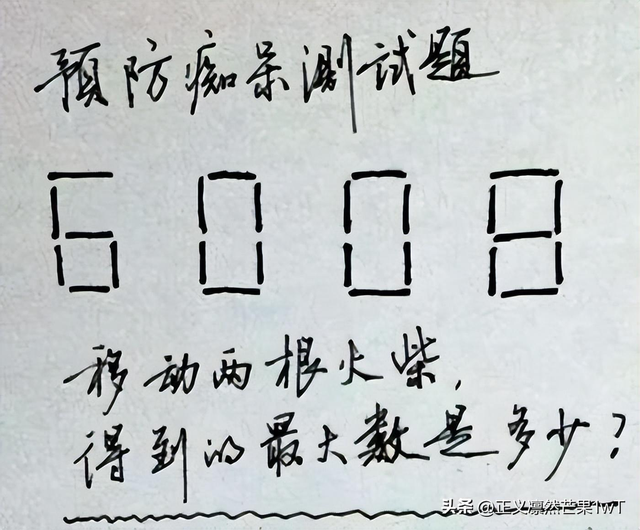 预防痴呆测试题
6008
移动两根火柴，
得到的最大数是多少？
头条 @正义凛然芒果1WT